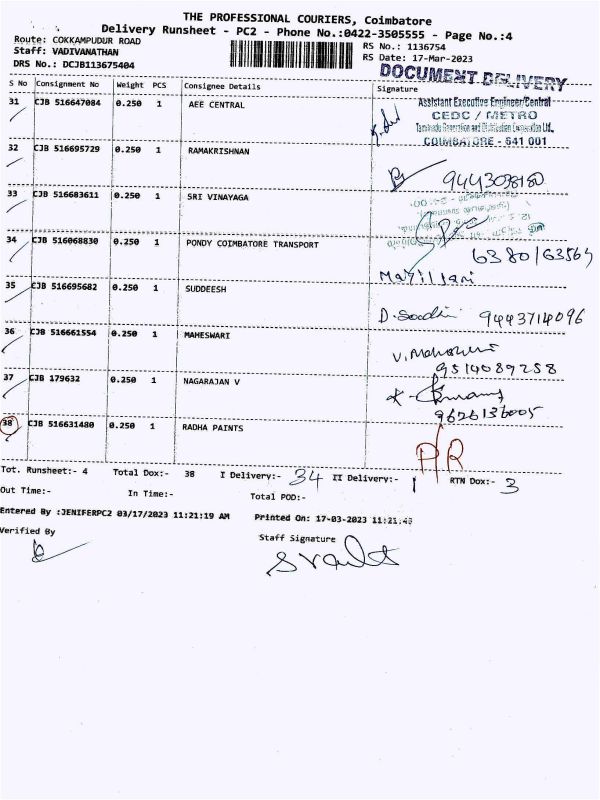 THE PROFESSIONAL COURIERS, Coimbatore
Delivery Runsheet - PC2 - Phone No.:0422-3505555 - Page No.:4
Route: COKKAMPUDUR ROAD
RS No.: 1136754
Staff: VADIVANATHAN
RS Date: 17-Mar-2023
DRS No.: DCJB113675404
DOCUMENT DELIVERY
S No Consignment No Weight PCS Consignee Details Signature
31 CJB 516647084 0.250 1 AEE CENTRAL
Assistant Executive Engineer/Central
CEDC / METRO
Tamilnadu Generation and Distribution Corporation Ltd.,
COIMBATORE - 641 001
32 CJB 516695729 0.250 1 RAMAKRISHNAN
33 CJB 516683611 0.250 1 SRI VINAYAGA
34 CJB 516068830 0.250 1 PONDY COIMBATORE TRANSPORT
35 CJB 516695682 0.250 1 SUDDEESH
9443714096
36 CJB 516661554 0.250 1 MAHESWARI
9514089258
37 CJB 179632 0.250 1 NAGARAJAN V
9626136005
38 CJB 516631480 0.250 1 RADHA PAINTS
P/R
Tot. Runsheet:- 4 Total Dox:- 38 I Delivery:- 34 II Delivery:- 1 RTN Dox:- 3
Out Time:- In Time:- Total POD:-
Entered By :JENIFERPC2 03/17/2023 11:21:19 AM Printed On: 17-03-2023 11:21:43
Verified By
Staff Signature